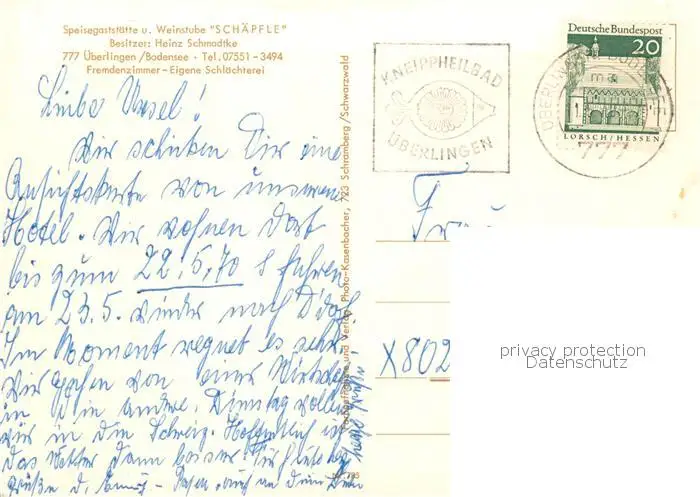 Speisegaststätte u. Weinstube "SCHÄPFLE"
Besitzer: Heinz Schmadtke
777 Überlingen/Bodensee - Tel. 07551-3494
Fremdenzimmer - Eigene Schlächterei
Liebe Ursel!
Wir schicken Dir eine
Ansichtskarte von unserem
Hotel. Wir wohnen dort
bis zum 22.5.70 & fahren
am 23.5. wieder nach D'dorf.
Im Moment regnet es sehr.
Wir gehen von einer Wirtschaft
in die andere. Dienstag wollen
wir in die Schweiz. Hoffentlich ist
das Wetter dann besser. Für heute
Grüße
auch an Dein
Verlag Photo-Kasenbacher, 723 Schramberg/Schwarzwald
KNEIPPHEILBAD
ÜBERLINGEN
Deutsche Bundespost
20
LORSCH/HESSEN
X802
privacy protection
Datenschutz